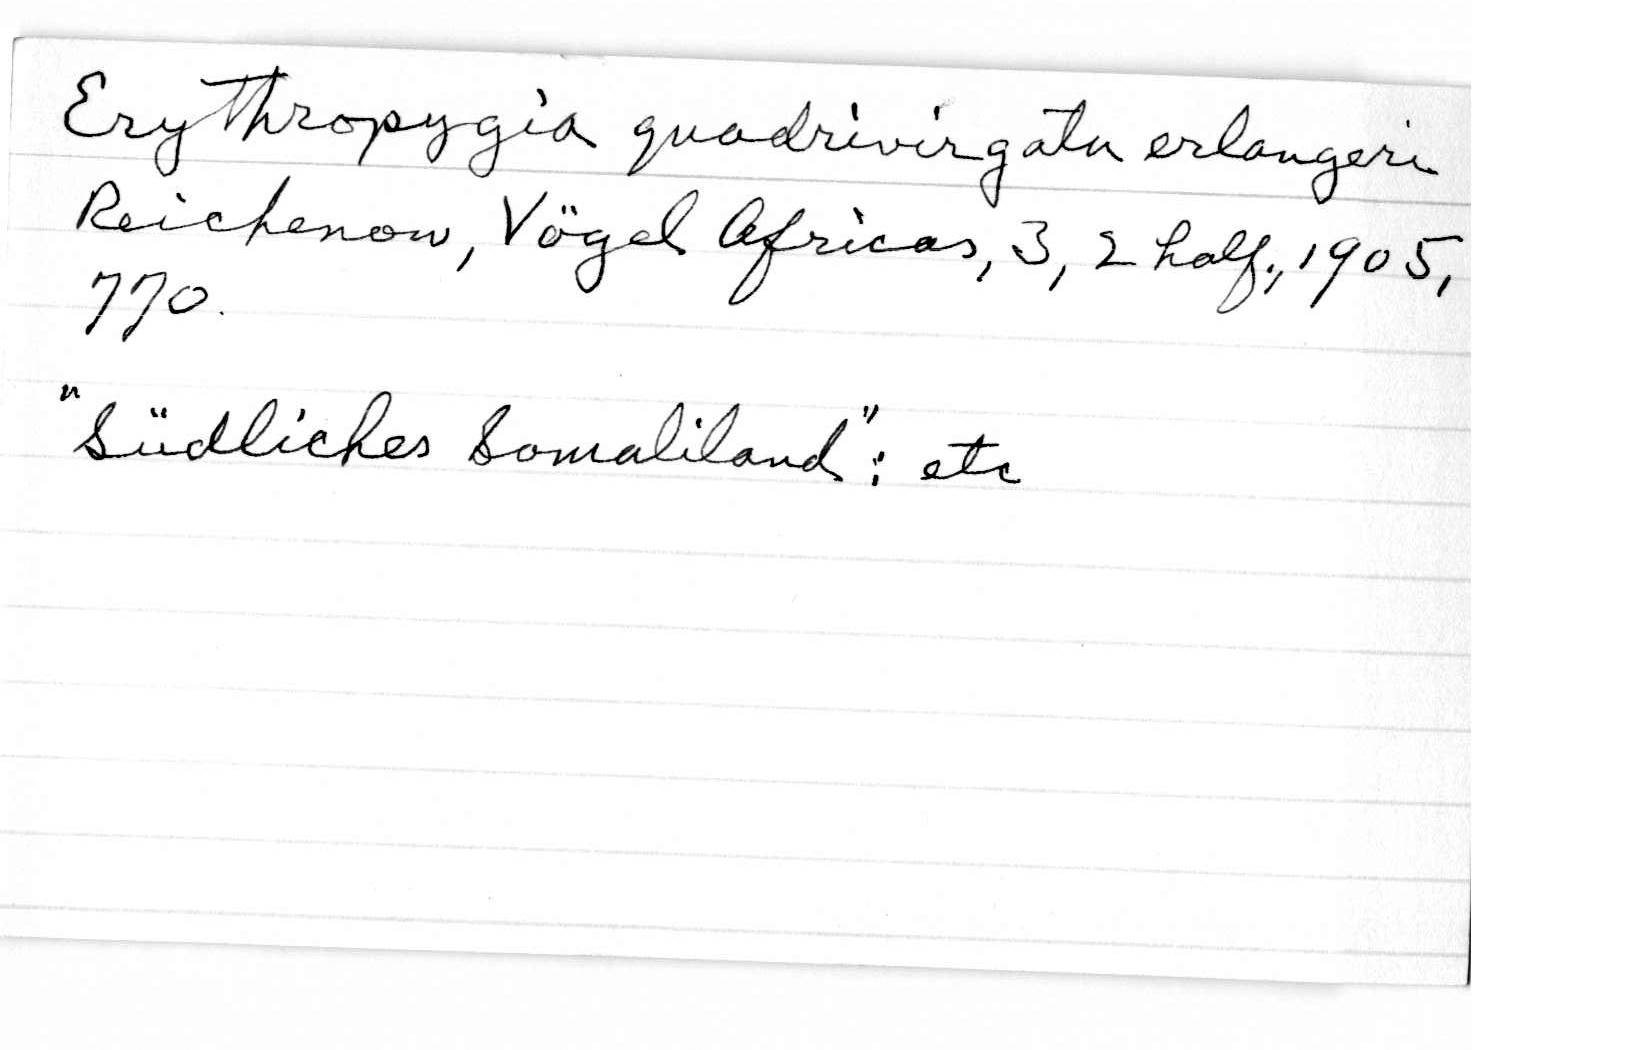 Erythropygia quadrivirgata erlangeri
Reichenow, Vögel Africas, 3, 2 half., 1905,
770.
"Südliches Somaliland"; etc